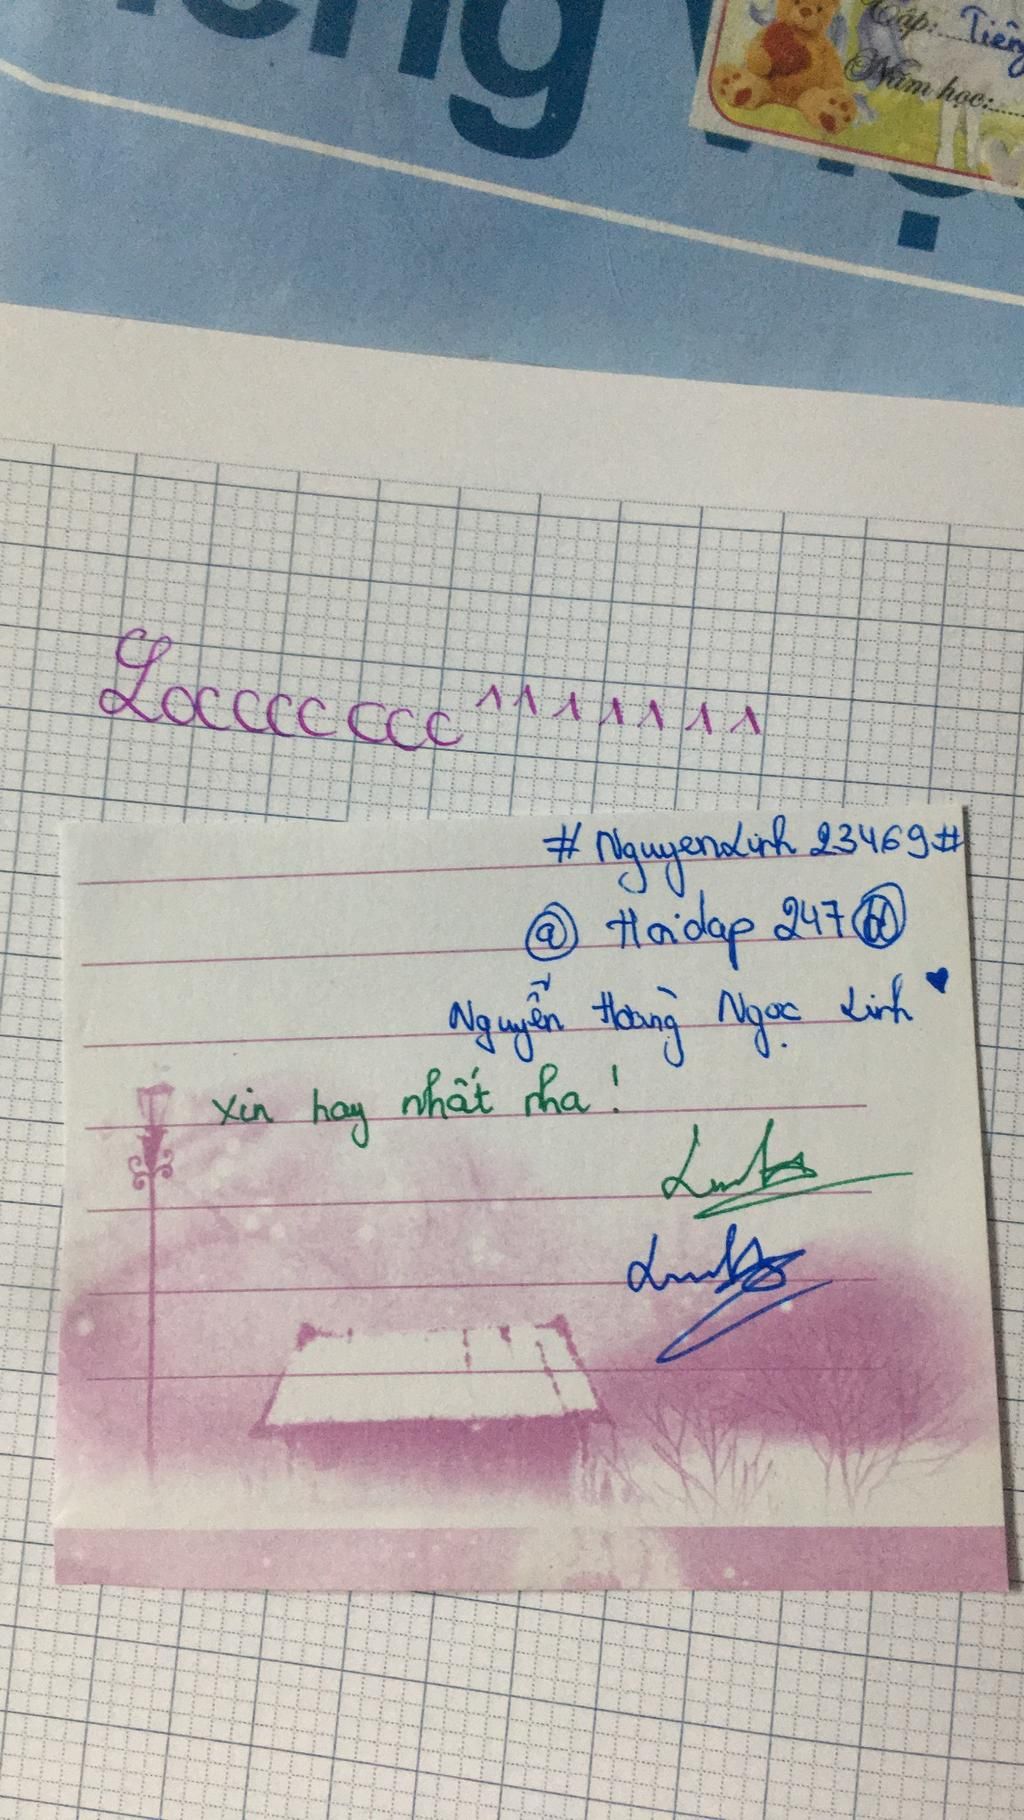 Tiếng Việt
Cấp: Tiếng
Năm học:
Locccccccc^^^^^^^
# NguyenLinh 23469#
@ Hoidap 247 @
Nguyễn Hoàng Ngọc Linh ♥
xin hay nhất nha !